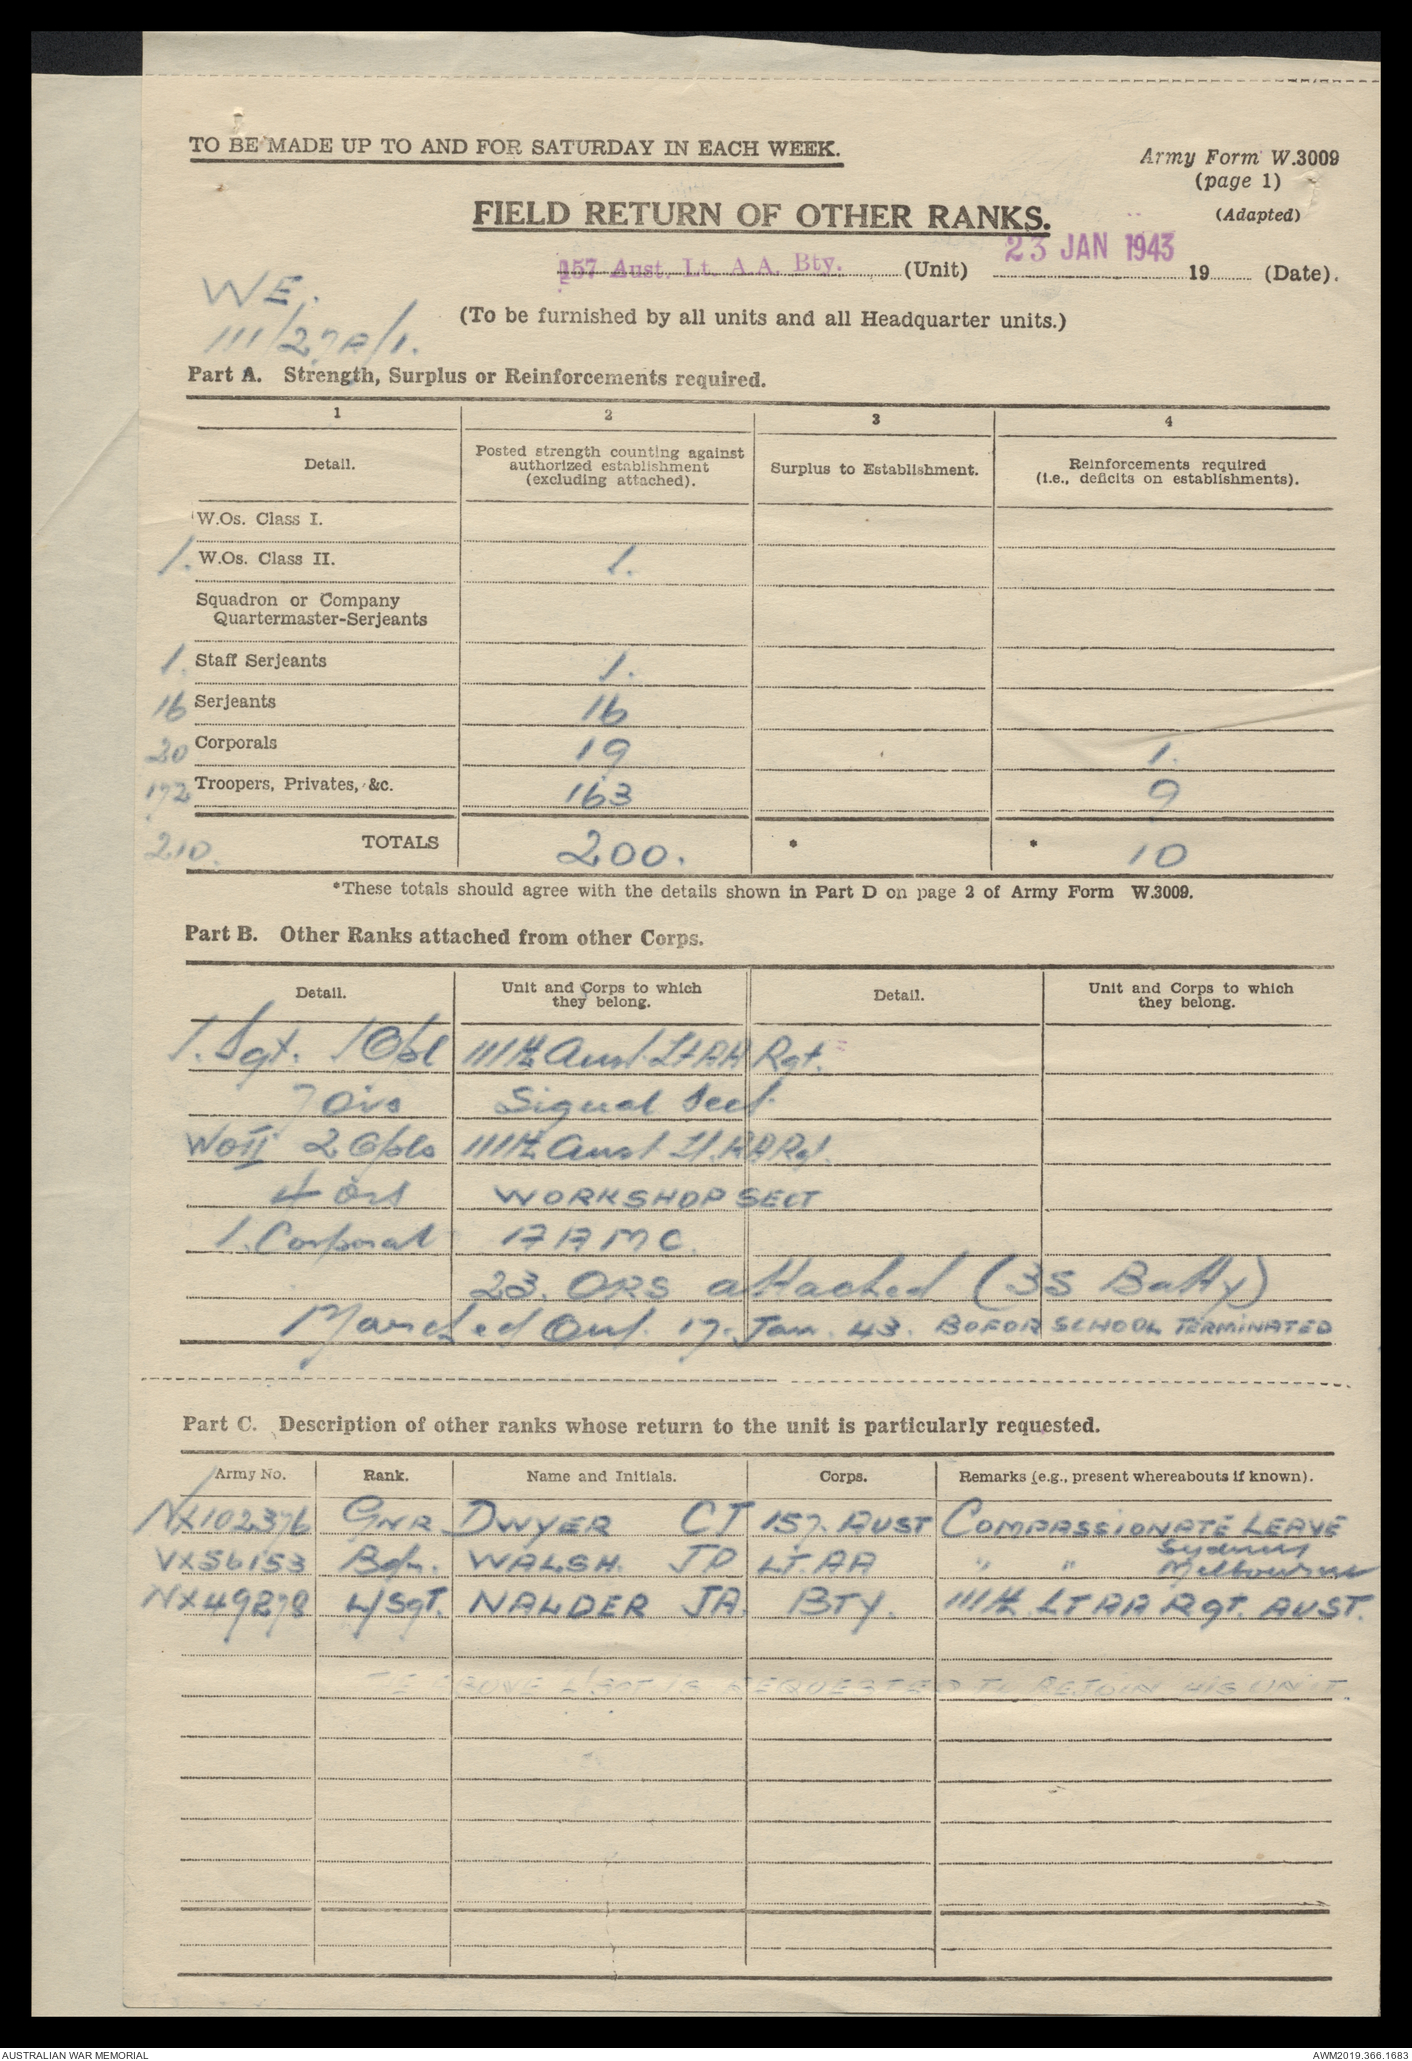 TO BE MADE UP TO AND FOR SATURDAY IN EACH WEEK.
Army Form W.3009
(page 1)
(Adapted)
FIELD RETURN OF OTHER RANKS.
157 Aust. Lt. A.A. Bty. (Unit) 23 JAN 1943 19 (Date).
WE.
111/27A/1.
(To be furnished by all units and all Headquarter units.)
Part A. Strength, Surplus or Reinforcements required.
1 2 3 4
Detail. Posted strength counting against authorized establishment (excluding attached). Surplus to Establishment. Reinforcements required (i.e., deficits on establishments).
W.Os. Class I.
1. W.Os. Class II. 1.
Squadron or Company
Quartermaster-Serjeants
1. Staff Serjeants 1.
16 Serjeants 16
20 Corporals 19 1.
172 Troopers, Privates, &c. 163 9
210. TOTALS 200. * * 10
*These totals should agree with the details shown in Part D on page 2 of Army Form W.3009.
Part B. Other Ranks attached from other Corps.
Detail. Unit and Corps to which they belong. Detail. Unit and Corps to which they belong.
1. Sgt. 1 Cpl 111th Aust. Lt AA Rgt.
7 Ors Signal Sect.
WOII 2 Cpls 111th Aust Lt. AA Rgt.
4 Ors WORKSHOP SECT
1. Corporal AAMC.
23. ORS attached (35 Batty)
Marched Out. 17. Jan. 43. BOFOR SCHOOL TERMINATED
Part C. Description of other ranks whose return to the unit is particularly requested.
Army No. Rank. Name and Initials. Corps. Remarks (e.g., present whereabouts if known).
NX102376 GNR DWYER CJ 157. AUST COMPASSIONATE LEAVE
Sydney
VX56153 Bdr. WALSH. JP LT. AA " " Melbourne
NX49278 L/Sgt. NALDER JA. BTY. 111th LT AA Rgt. AUST.
THE ABOVE L/SGT IS REQUESTED TO REJOIN HIS UNIT.
AUSTRALIAN WAR MEMORIAL
AWM2019.366.1683